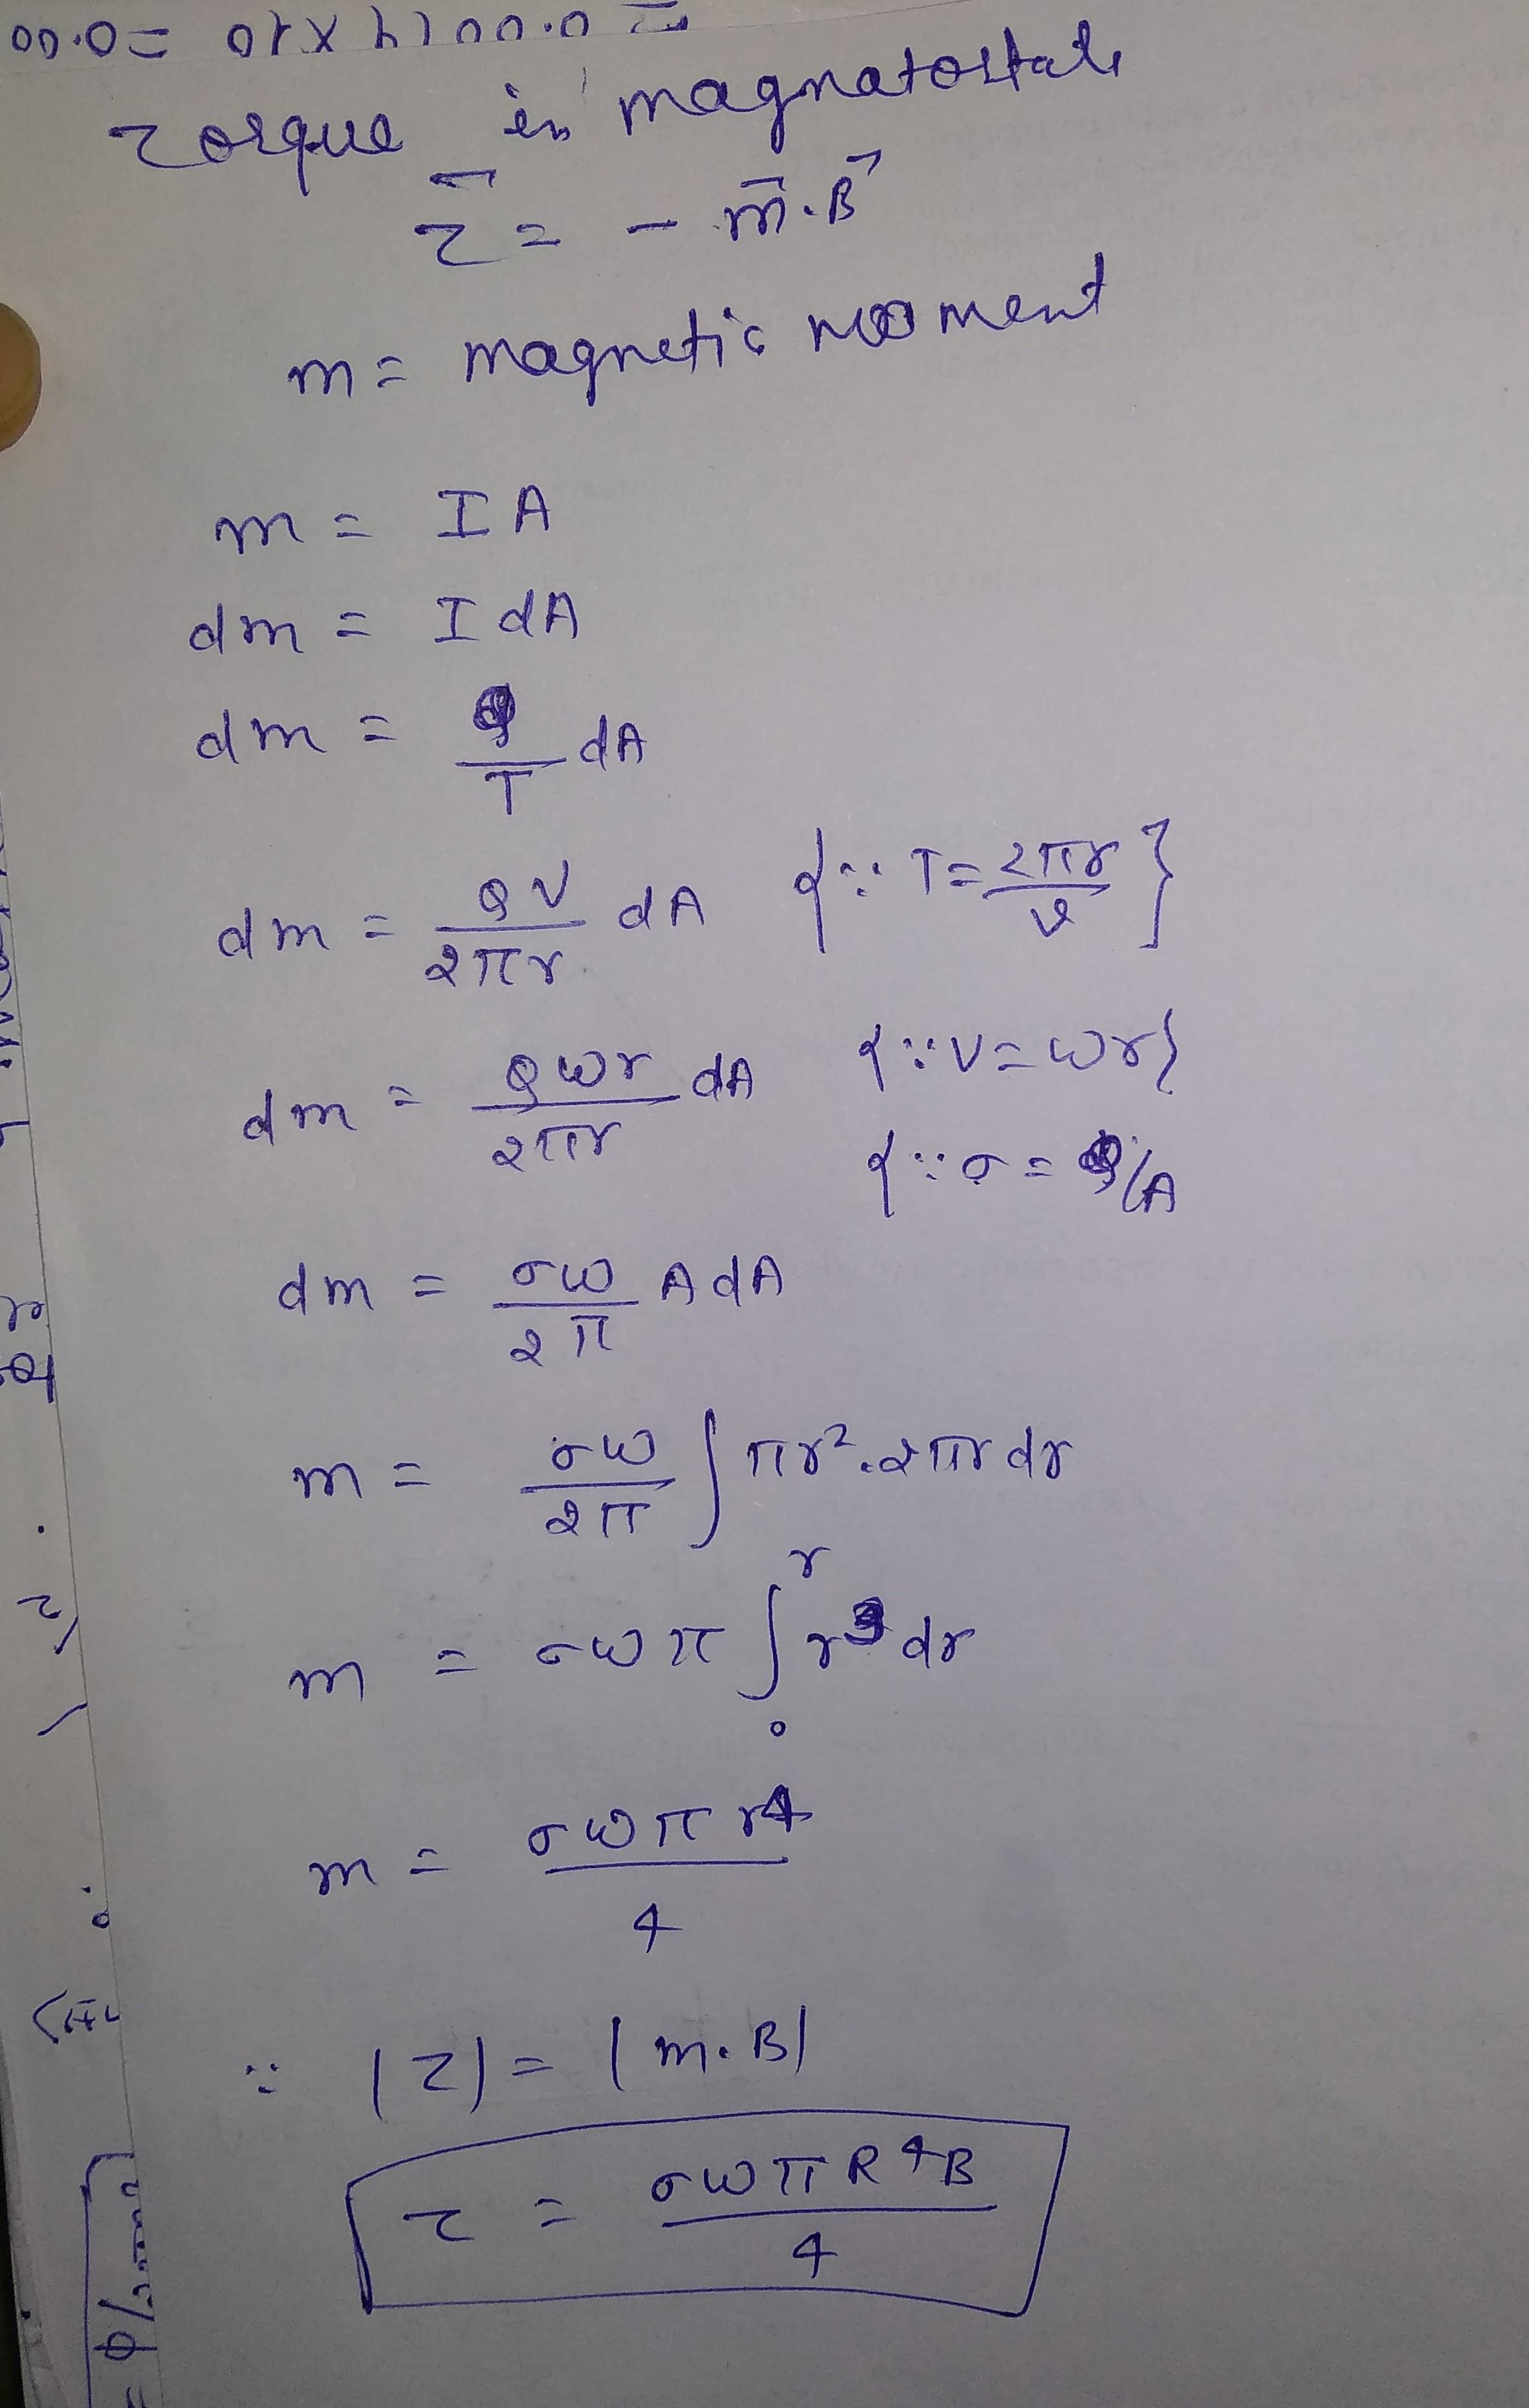 Torque in magnatostati
τ⃗ = - m⃗.B⃗
m = magnetic moment
m = IA
dm = I dA
dm = Q/T dA
dm = QV/2πr dA {∵ T = 2πr/v}
dm = Qωr/2πr dA {∵ V = ωr}
{∵ σ = Q/A
dm = σω/2π A dA
m = σω/2π ∫ πr².2πr dr
m = σωπ ∫₀ʳ r³ dr
m = σωπ r⁴/4
∵ |τ| = |m.B|
τ = σωπR⁴B/4